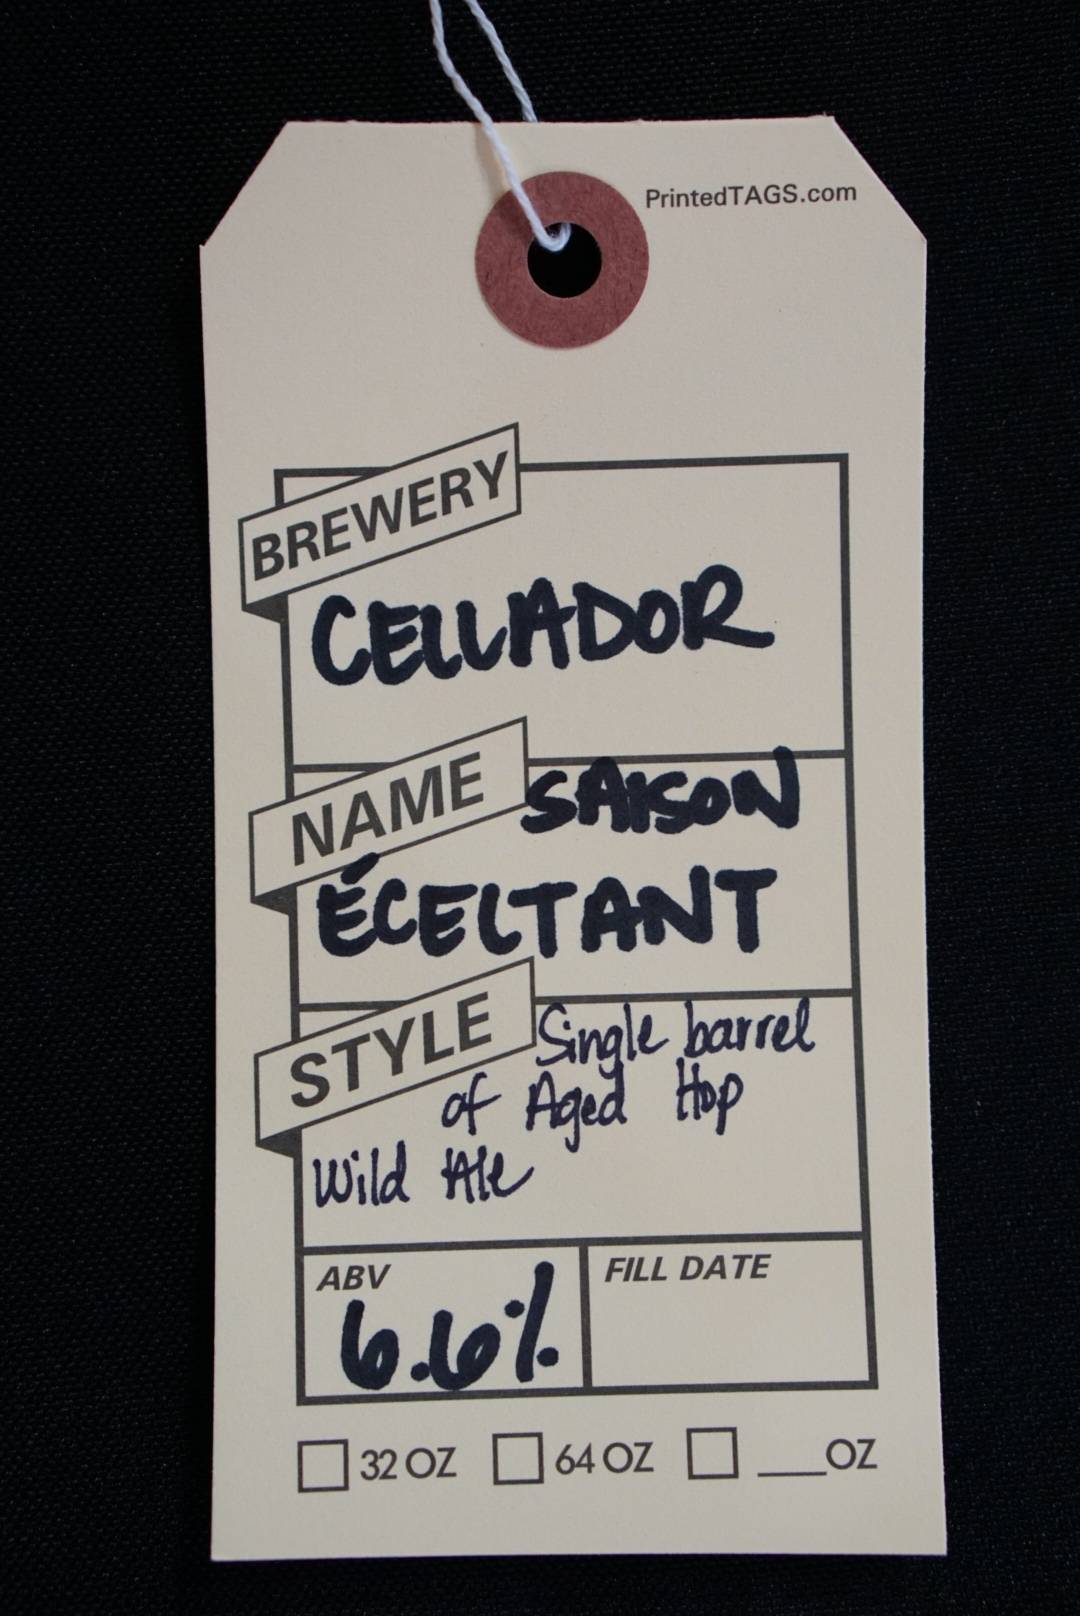 PrintedTAGS.com
BREWERY
CELLADOR
NAME SAISON
ÉCELTANT
STYLE Single barrel
of Aged Hop
Wild Ale
ABV FILL DATE
6.6%
32 OZ 64 OZ ___OZ